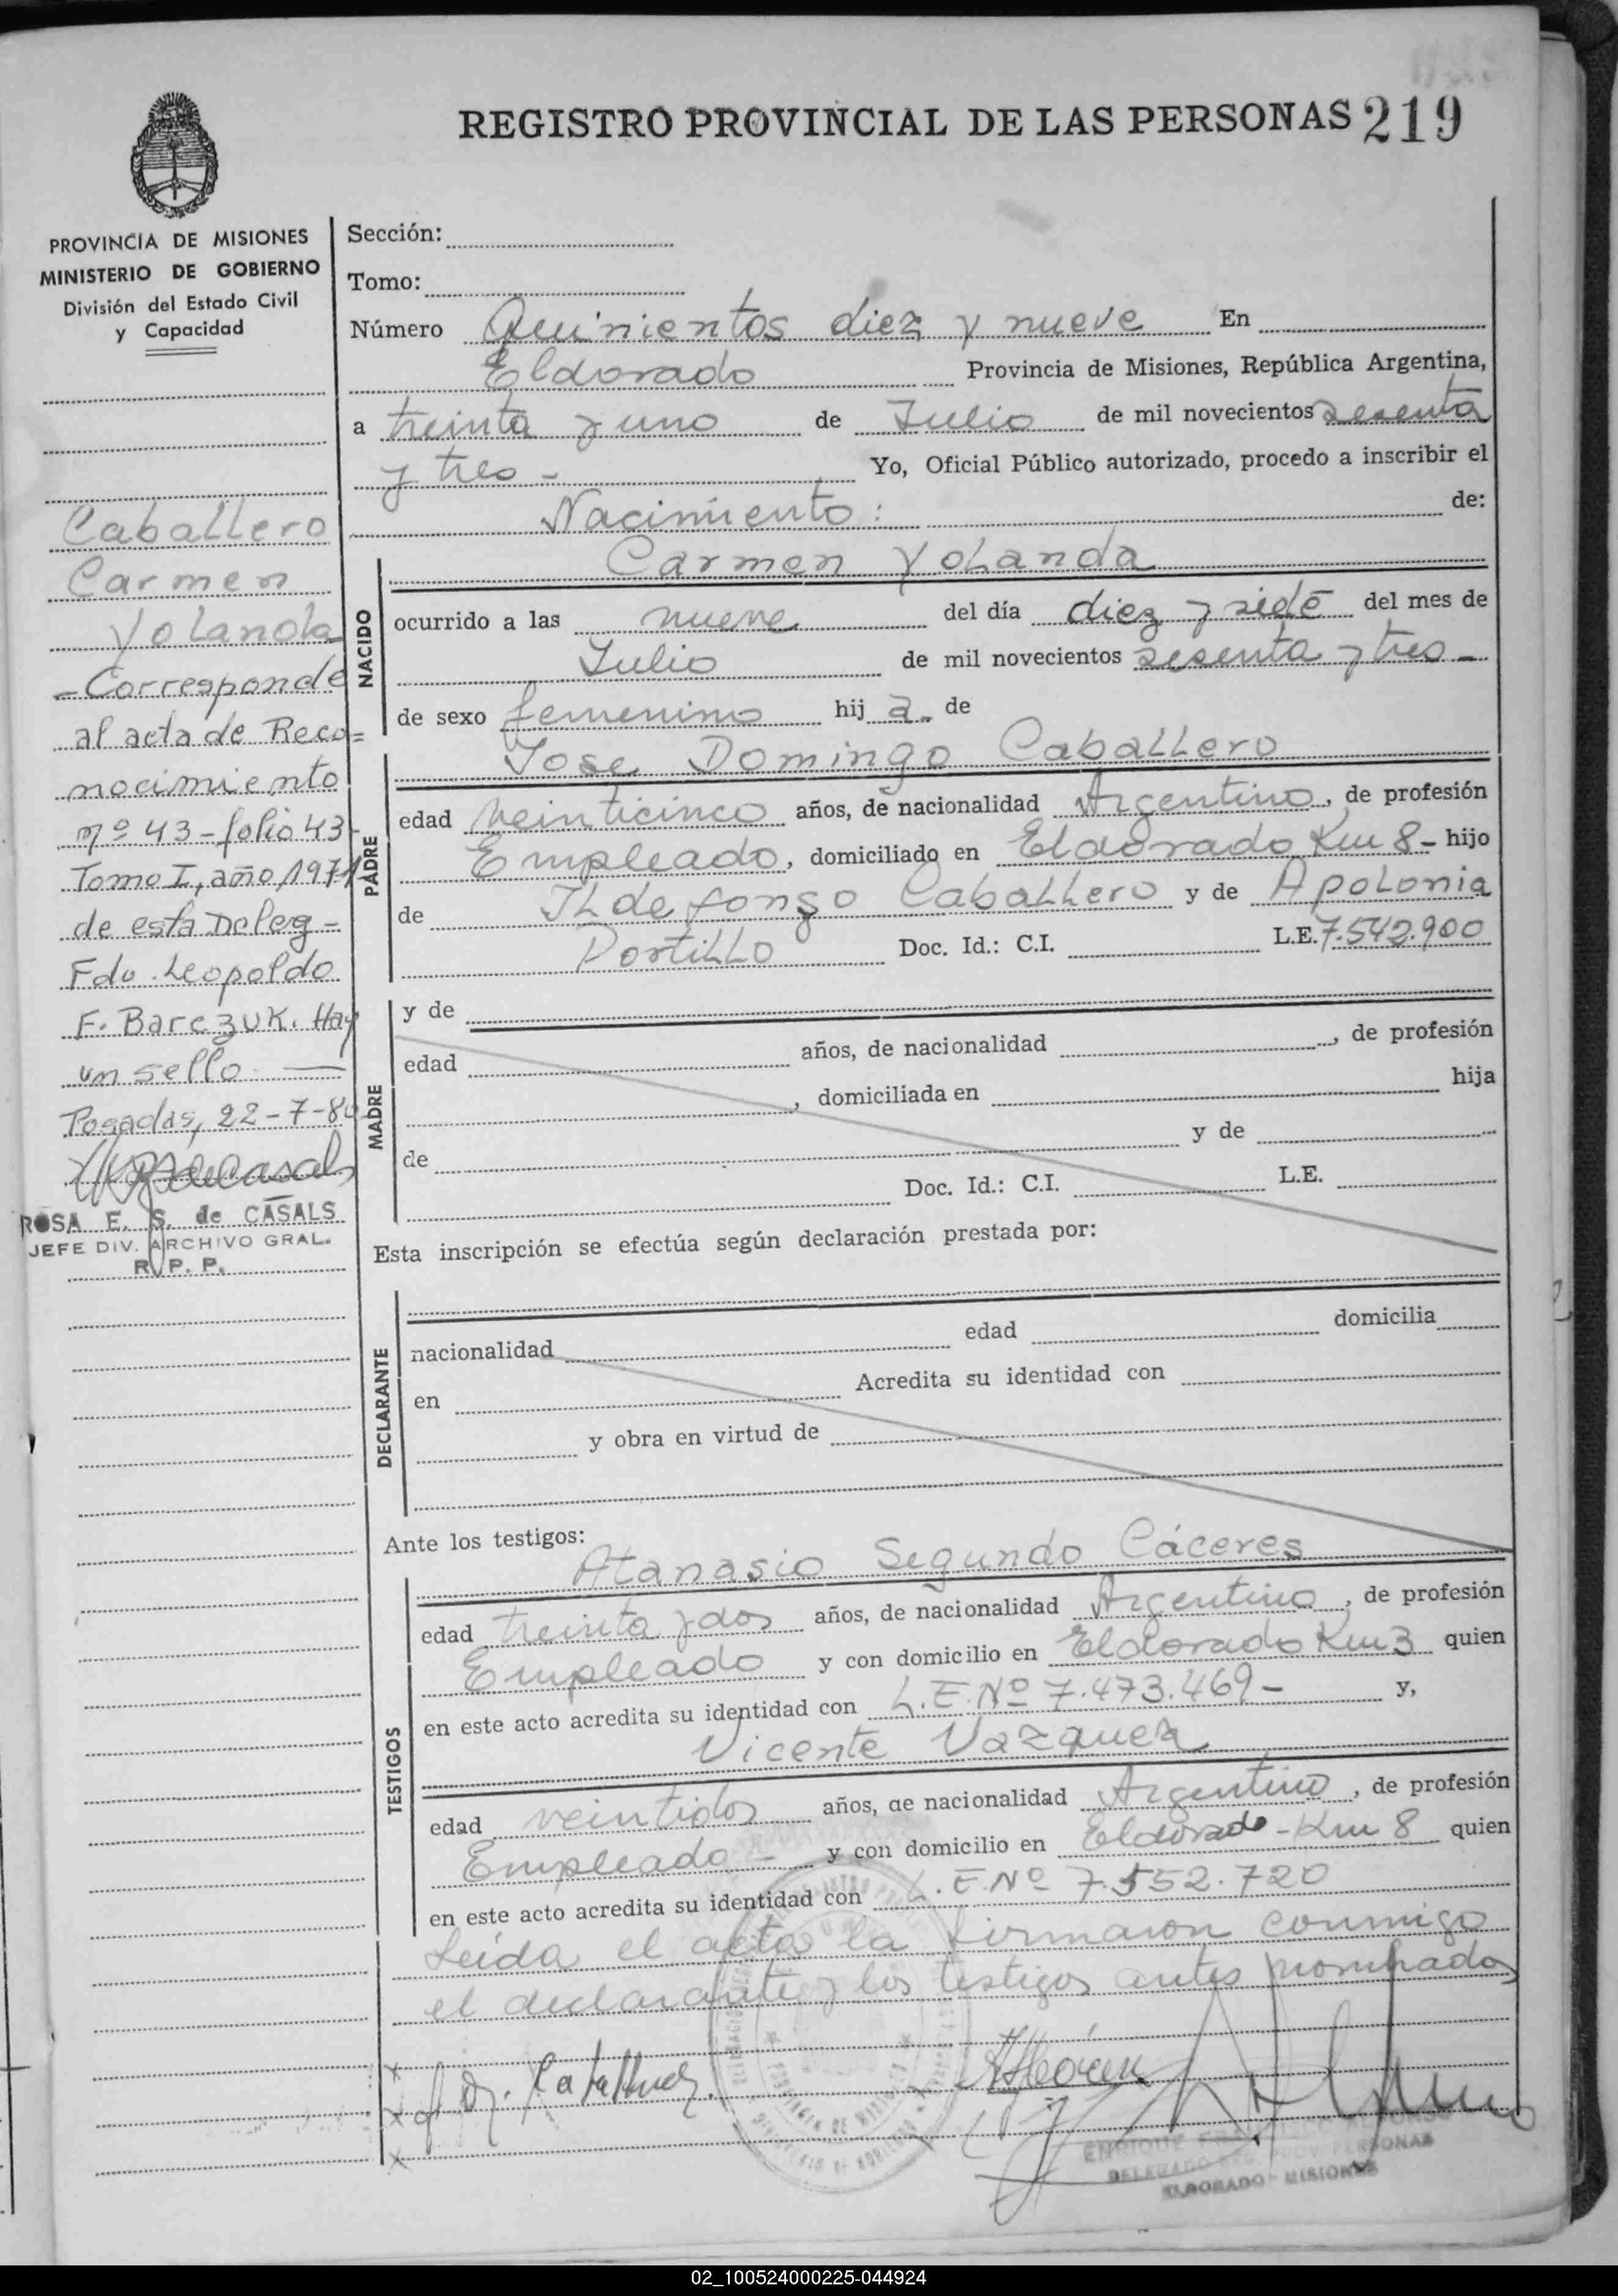 REGISTRO PROVINCIAL DE LAS PERSONAS 219
PROVINCIA DE MISIONES
MINISTERIO DE GOBIERNO
División del Estado Civil
y Capacidad
Caballero
Carmen
Yolanda
- Corresponde
al acta de Reco=
nocimiento
nº 43 - folio 43 -
Tomo I, año 1971
de esta Deleg -
Fdo. Leopoldo
F. Barczuk. Hay
un sello
Posadas, 22-7-80
ROSA E. S. de CASALS
JEFE DIV. ARCHIVO GRAL.
R. P. P.
Sección:
Tomo:
Número Quinientos diez y nueve En
Eldorado Provincia de Misiones, República Argentina,
a treinta y uno de Julio de mil novecientos sesenta
y tres - Yo, Oficial Público autorizado, procedo a inscribir el
Nacimiento: de:
Carmen Yolanda
NACIDO
ocurrido a las nueve del día diez y siete del mes de
Julio de mil novecientos sesenta y tres -
de sexo femenino hija de
Jose Domingo Caballero
PADRE
edad veinticinco años, de nacionalidad Argentino, de profesión
Empleado, domiciliado en Eldorado Km 8 - hijo
de Ildefonso Caballero y de Apolonia
Portillo Doc. Id.: C.I. L.E. 7.542.900
MADRE
y de
edad años, de nacionalidad , de profesión
, domiciliada en hija
de y de
Doc. Id.: C.I. L.E.
Esta inscripción se efectúa según declaración prestada por:
DECLARANTE
nacionalidad edad domicilia
en Acredita su identidad con
y obra en virtud de
Ante los testigos:
Atanasio Segundo Cáceres
TESTIGOS
edad treinta y dos años, de nacionalidad Argentino, de profesión
Empleado y con domicilio en Eldorado Km 3 quien
en este acto acredita su identidad con L.E. Nº 7.473.469 - y,
Vicente Vazquez
edad veintidos años, de nacionalidad Argentino, de profesión
Empleado - y con domicilio en Eldorado - Km 8 quien
en este acto acredita su identidad con L.E. Nº 7.552.720
Leida el acta la firmaron conmigo
el declarante y los testigos antes nombrados
ENRIQUE
DELEGADO REG. PROV. PERSONAS
ELDORADO - MISIONES
02_100524000225-044924